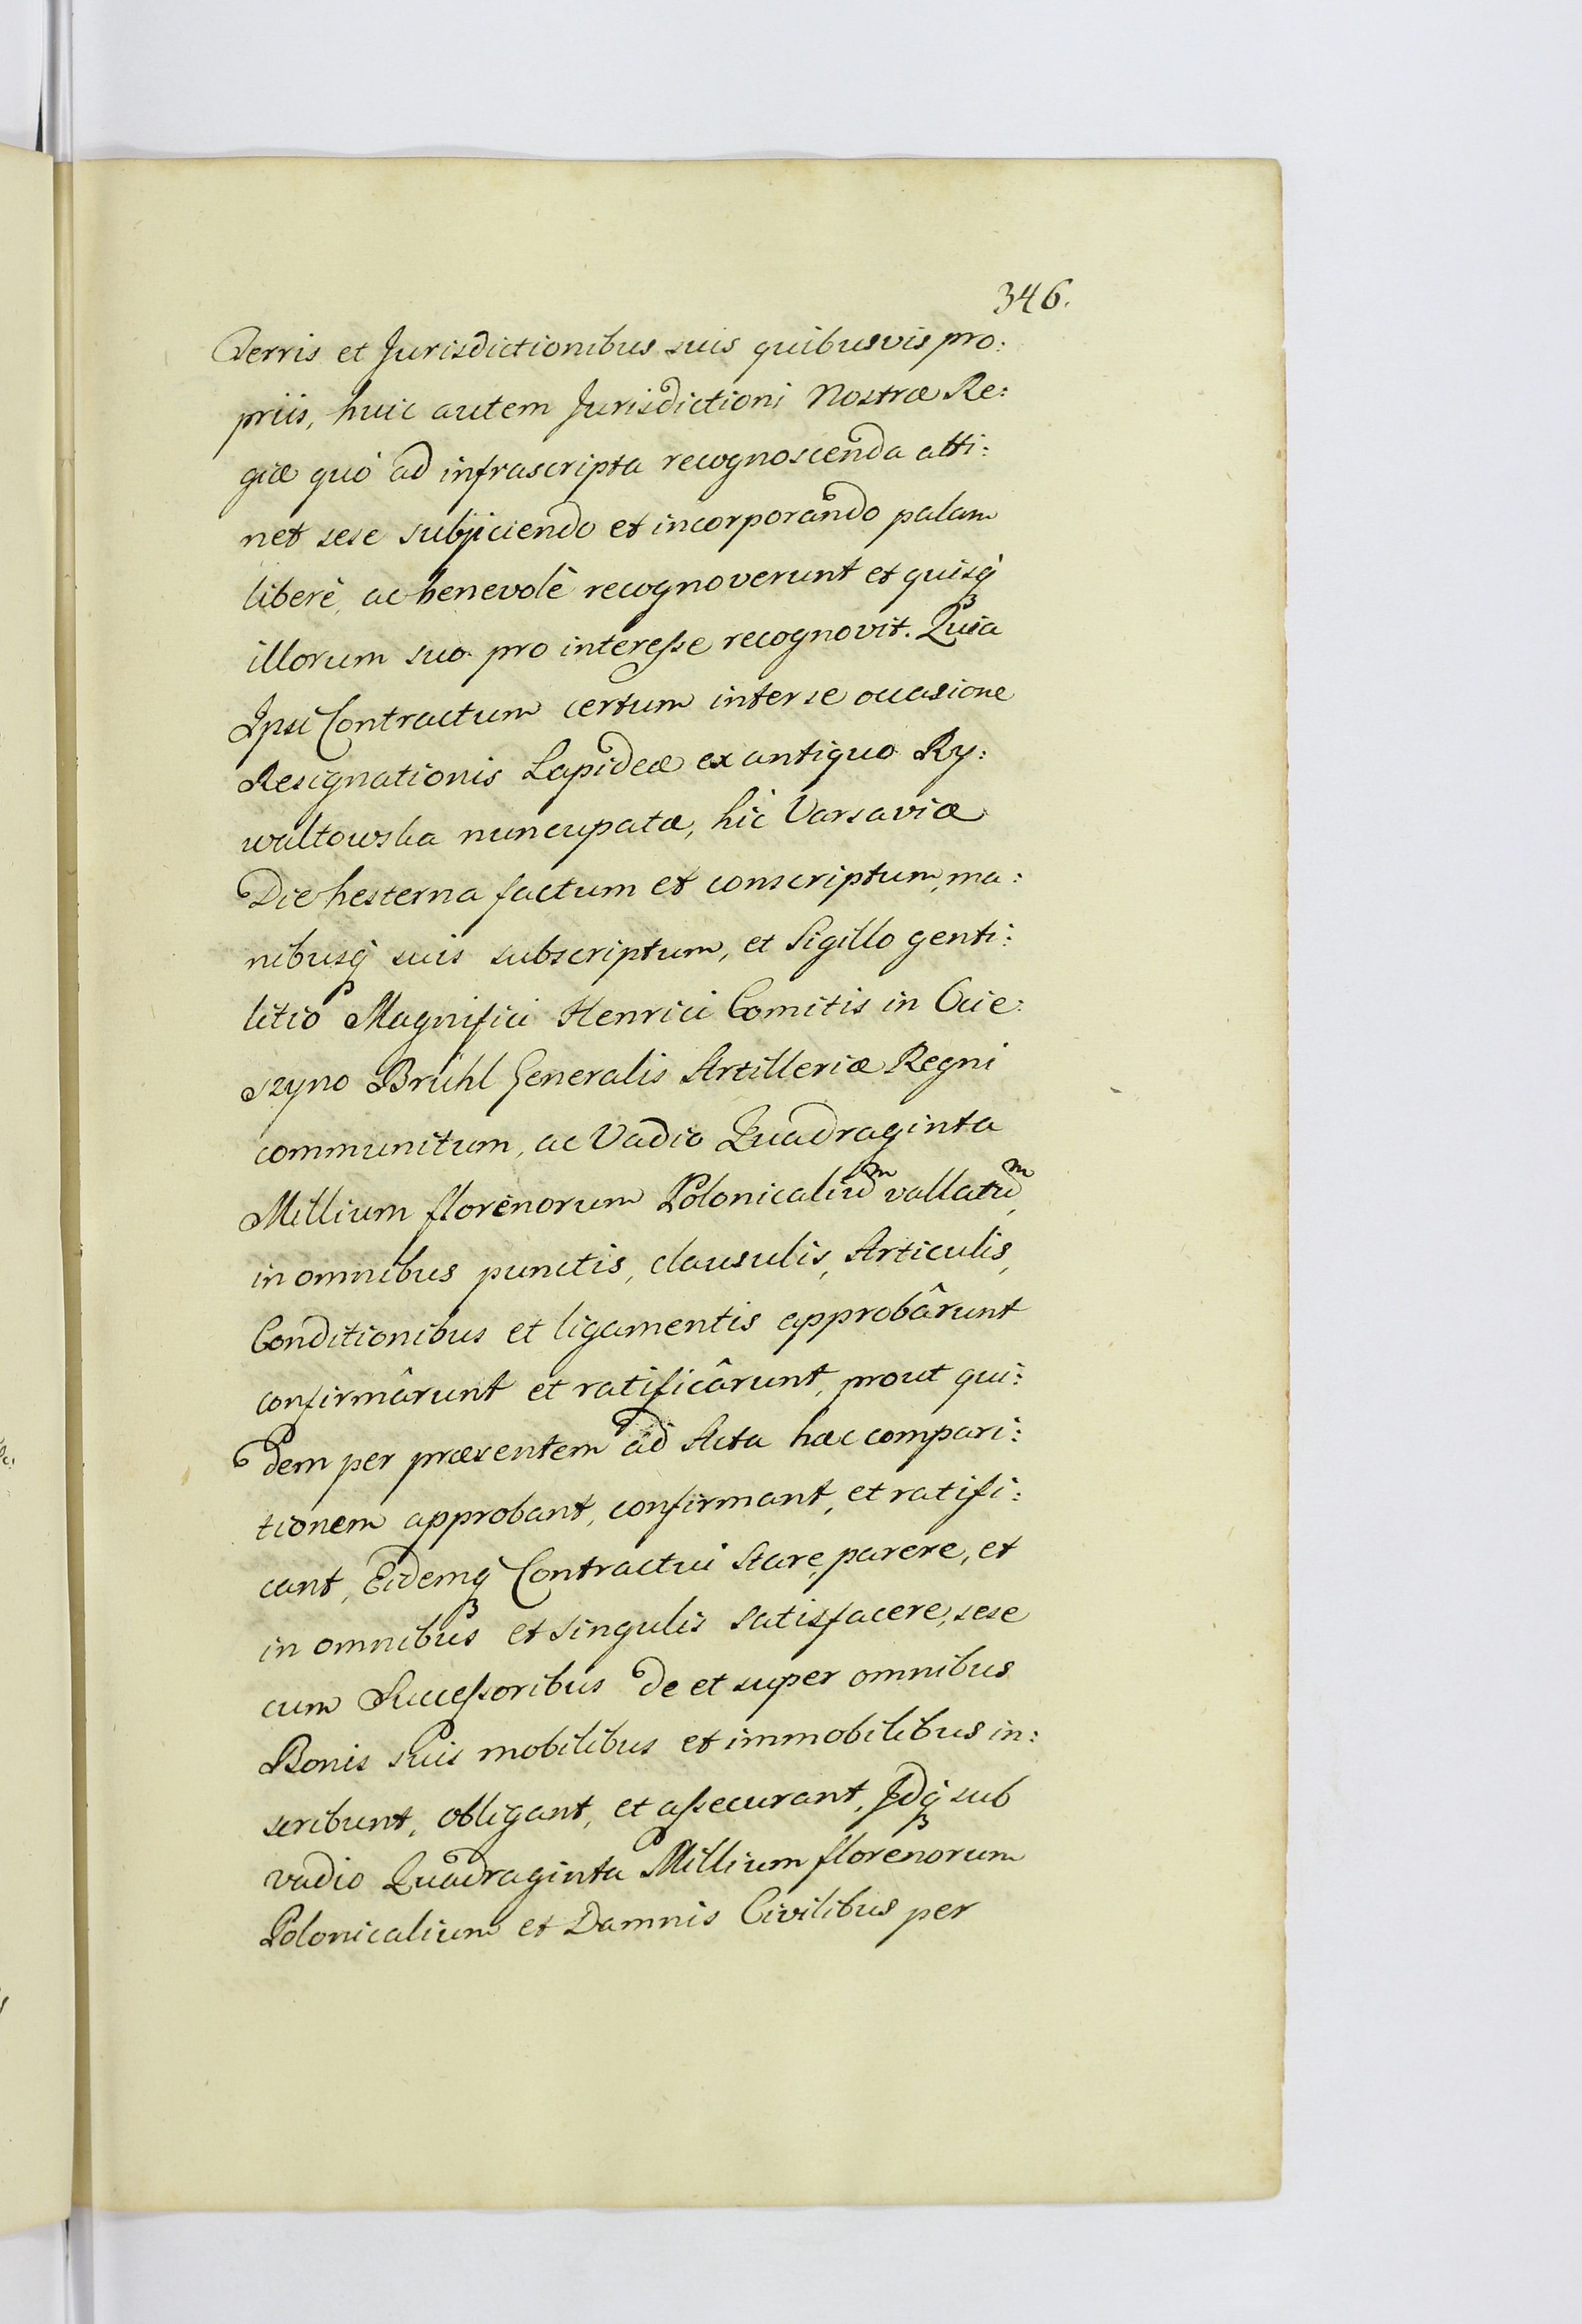 346.
Terris et Jurisdictionibus suis quibusvis pro:
priis, huic autem Jurisdictioni Nostræ Re:
giæ quò ad infrascripta recognoscenda atti:
net sese subjiciendo et incorporando palam
liberè, ac benevolè recognoverunt et quisq́ꝫ
illorum suo pro interesse recognovit. Quia
Ipsi Contractum certum inter se occasione
Resignationis Lapideæ ex antiquo Ry:
waltowska nuncupatæ, hic Varsaviæ
Die hesterna factum et conscriptum, ma:
nibusq́ꝫ suis subscriptum, et Sigillo genti:
litio Magnifici Henrici Comitis in Ocie:
szyno Brühl Generalis Artilleriæ Regni
communitum, ac Vadio Quadraginta
Millium florenorum Polonicaliuᵐ vallatuᵐ,
in omnibus punctis, clausulis, Articulis,
Conditionibus et ligamentis approbârunt
confirmârunt et ratificârunt, prout qui:
dem per præsentem ad Acta hæc compari:
tionem approbant, confirmant, et ratifi:
cant, Eidemq́ꝫ Contractui stare, parere, et
in omnibus et singulis satisfacere, sese
cum Successoribus de et super omnibus
Bonis suis mobilibus et immobilibus in:
scribunt, obligant, et assecurant, Idq́ꝫ sub
vadio Quadraginta Millium florenorum
Polonicalium et Damnis Civilibus per